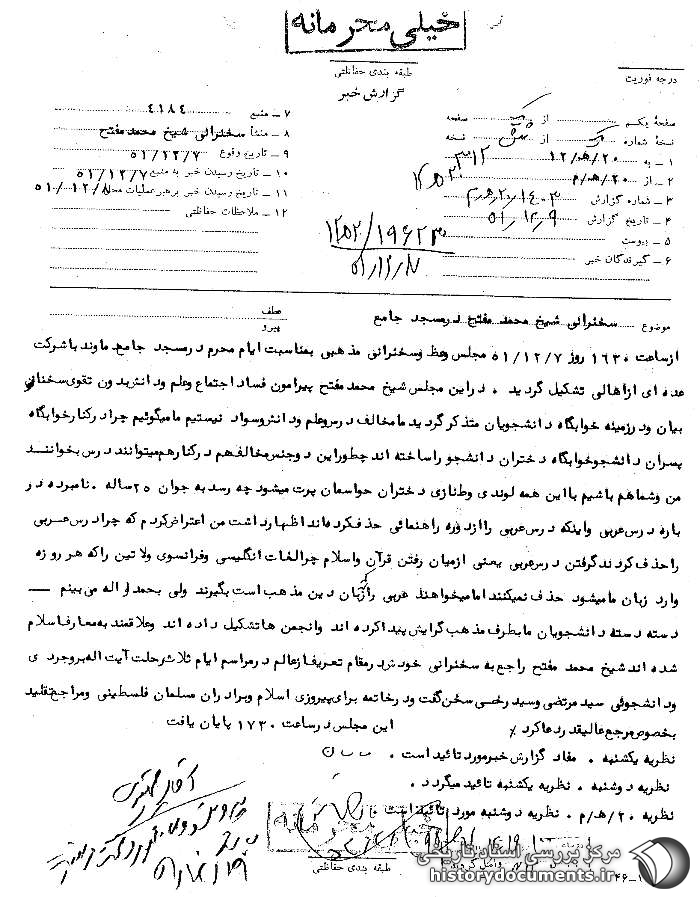 خیلی محرمانه
طبقه بندی حفاظتی
درجه فوریت
گزارش خبر
صفحهٔ یکم از صفحه
نسخهٔ شماره از نسخه
۱ ـ به ۲۰/ه‍/۱۲ ۳۱۲
۲ ـ از ۲۰/ه‍/م
۳ ـ شماره گزارش
۴ ـ تاریخ گزارش ۵۱/۱۲/۹
۵ ـ پیوست
۶ ـ گیرندگان خبر
۷ ـ منبع ۴۱۸۴
۸ ـ منشأ سخنرانی شیخ محمد مفتح
۹ ـ تاریخ وقوع ۵۱/۱۲/۷
۱۰ ـ تاریخ رسیدن خبر به منبع ۵۱/۱۲/۷
۱۱ ـ تاریخ رسیدن خبر برهبر عملیات محل ۵۱/۱۲/۸
۱۲ ـ ملاحظات حفاظتی
موضوع سخنرانی شیخ محمد مفتح درمسجد جامع
عطف
پیرو
ازساعت ۱۶۳۰ روز ۵۱/۱۲/۷ مجلس وعظ وسخنرانی مذهبی بمناسبت ایام محرم درمسجد جامع ماوند باشرکت
عده ای ازاهالی تشکیل گردید . دراین مجلس شیخ محمد مفتح پیرامون فساد اجتماع وعلم ودانش بدون تقوی سخنانی
بیان ودرزمینه خوابگاه دانشجویان متذکر گردید مامخالف درس وعلم ودانش وسواد نیستیم مامیگوئیم چرا درکنار خوابگاه
پسران دانشجو خوابگاه دختران دانشجو راساخته اند چطوراین دوجنس مخالف هم درکنارهم میتوانند درس بخوانند
من وشماهم باشیم بااین همه لوندی وطنازی دختران حواسمان پرت میشود چه رسد به جوان ۲۵ساله . نامبرده در
باره درس عربی واینکه درس عربی راازدوره راهنمائی حذف کرده اند اظهارداشت من اعتراض کردم که چرا درس عربی
راحذف کردند گرفتن درس عربی یعنی ازمیان رفتن قرآن واسلام چرالغات انگلیسی وفرانسوی ولاتین راکه هرروزه
وارد زبان مامیشود حذف نمیکنند امامیخواهند عربی راکه زبان دین مذهب است بگیرند ولی بحمداله می بینم
دسته دسته دانشجویان مابطرف مذهب گرایش پیدا کرده اند وانجمن هاتشکیل داده اند وعلاقمند به معارف اسلام
شده اند شیخ محمد مفتح راجع به سخنرانی خودش درمقام تعریف ازعالم درمراسم ایام ثلاث رحلت آیت اله بروجردی
ودانشجوئی سید مرتضی وسید رضی سخن گفت ودرخاتمه برای پیروزی اسلام وبرادران مسلمان فلسطینی ومراجع تقلید
بخصوص مرجع عالیقدر دعا کرد٪ این مجلس درساعت ۱۷۳۰ پایان یافت
نظریه یکشنبه . مفاد گزارش خبرمورد تائید است .
نظریه دوشنبه . نظریه یکشنبه تائید میگردد .
نظریه ۲۰/ه‍/م . نظریه دوشنبه مورد تائید است
خیلی محرمانه
طبقه بندی حفاظتی
مرکز بررسی اسناد تاریخی
historydocuments.ir